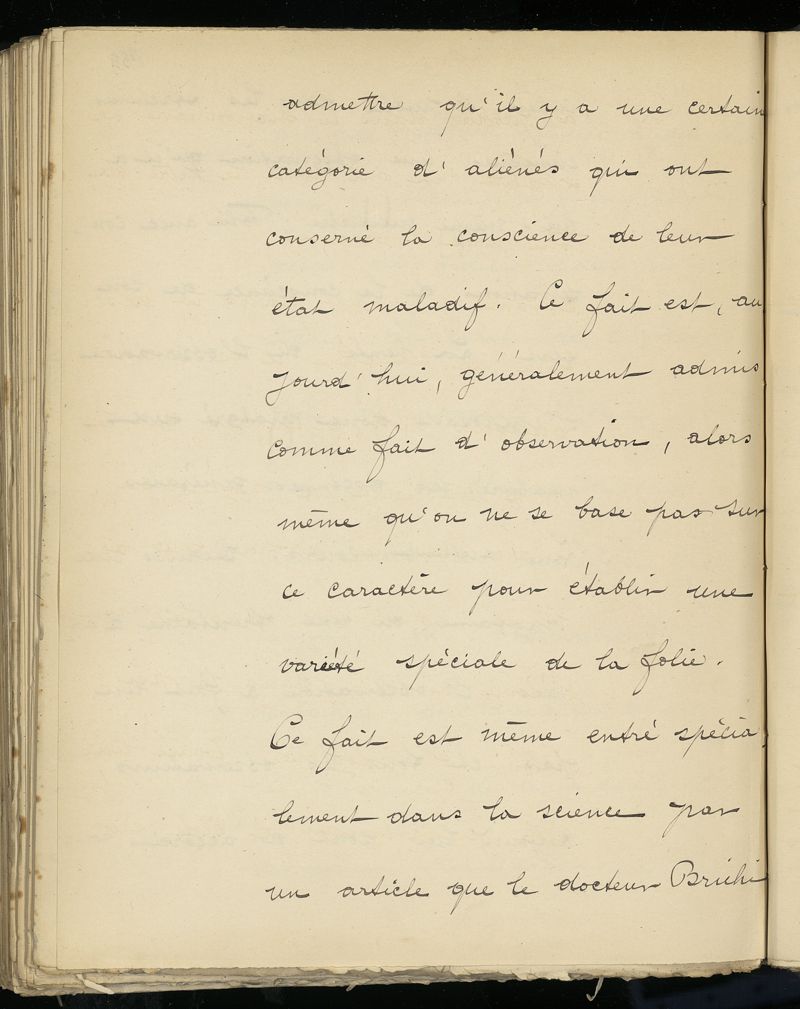 admettre qu'il y a une certain
catégorie d'aliénés qui ont
conservé la conscience de leur
état maladif. Ce fait est, au
jourd'hui, généralement admis
comme fait d'observation, alors
même qu'on ne se base pas sur
ce caractère pour établir une
variété spéciale de la folie.
Ce fait est même entré spécia
lement dans la science par
un article que le docteur